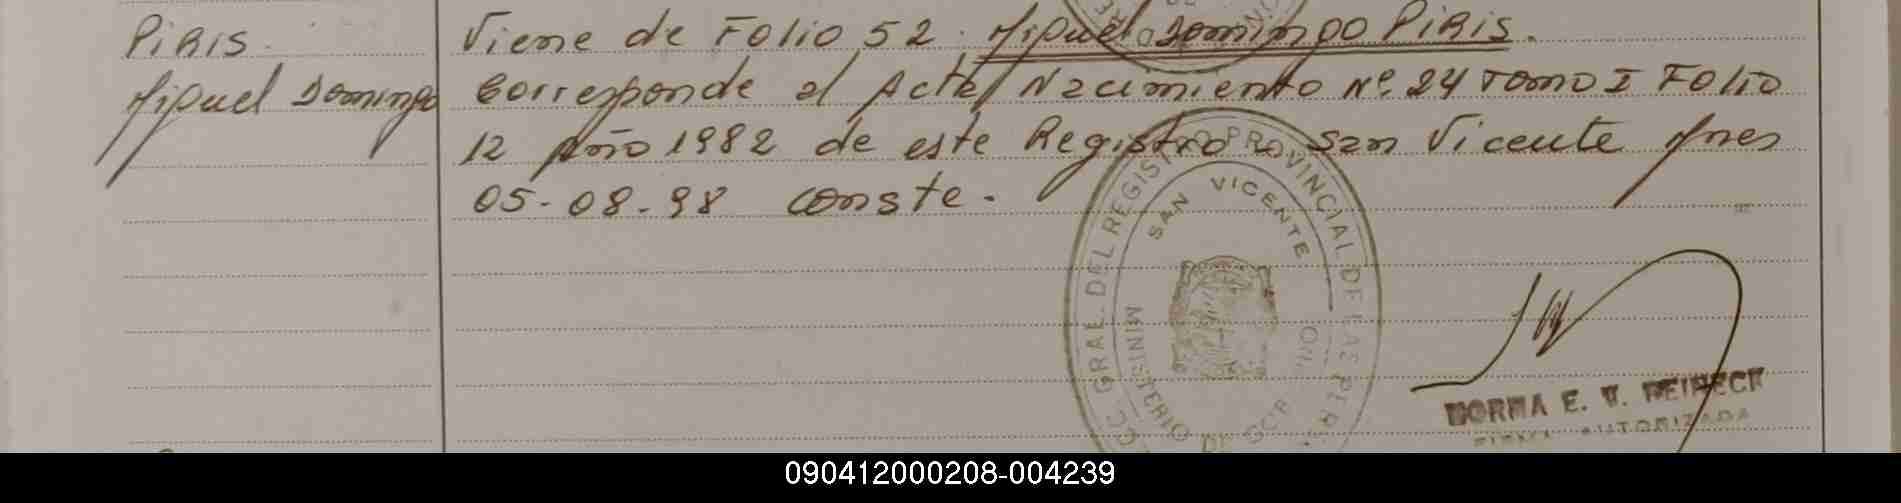 PiRis.
Miguel Domingo
Viene de Folio 52. Miguel Domingo PiRis.
Corresponde al Acta Nacimiento Nº 24 Tomo I Folio
12 Año 1982 de este Registro. San Vicente Mnes
05-08-98 conste.
GRAL. DEL REGISTRO PROVINCIAL DE LAS PERS
SAN VICENTE
MINISTERIO DE GOB
NORMA E. V. REINECK
FIRMA AUTORIZADA
090412000208-004239